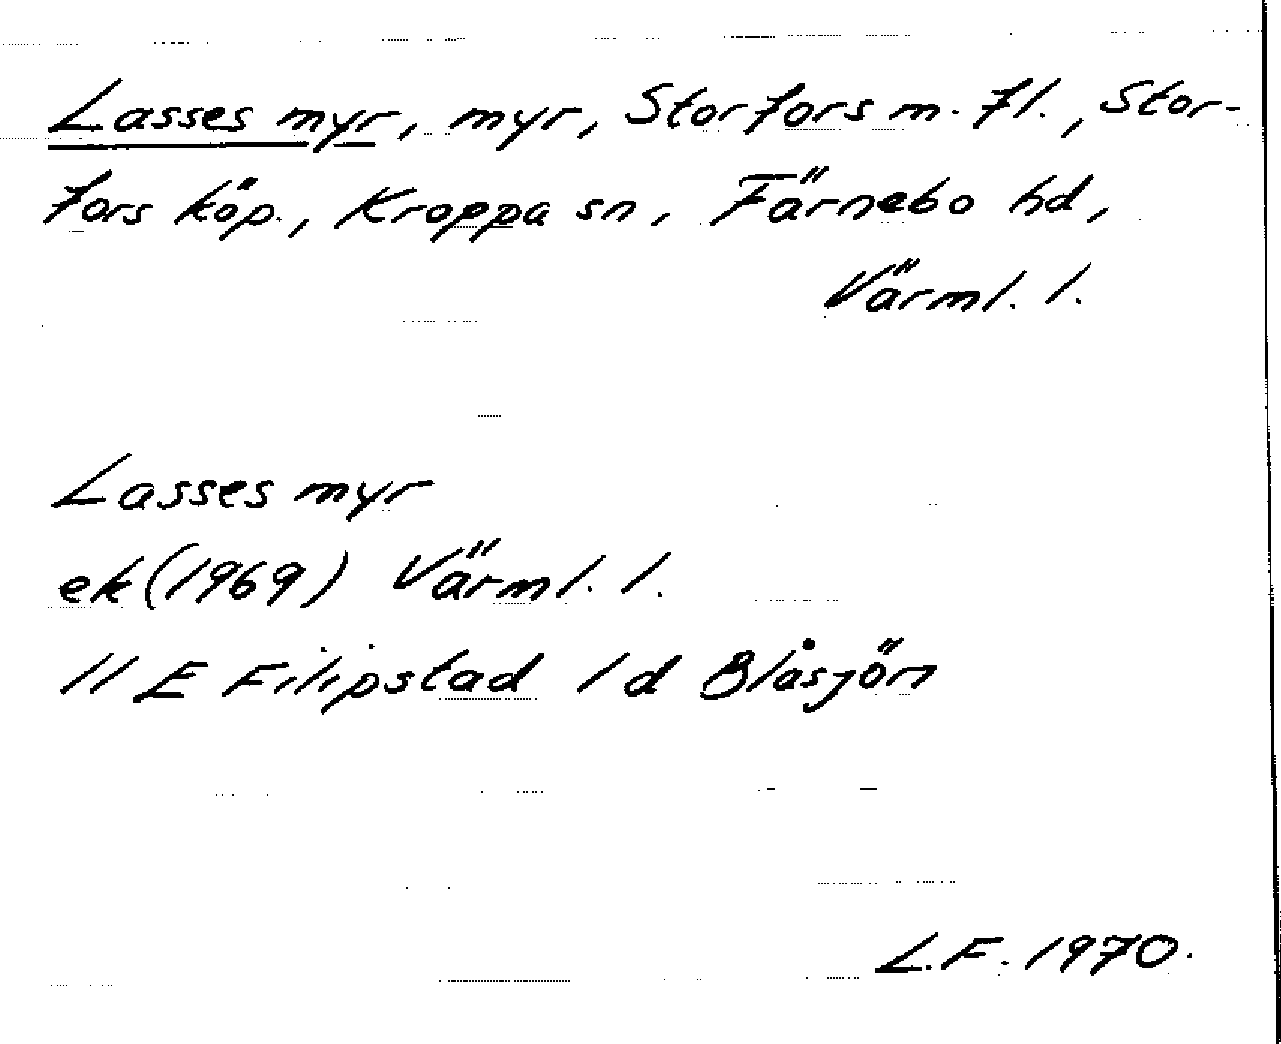 Lasses myr, myr, Storfors m. fl., Stor-
fors köp., Kroppa sn, Färnebo hd,
Värml. l.
Lasses myr
ek (1969) Värml. l.
11 E Filipstad 1 d Blåsjön
L.F. 1970.